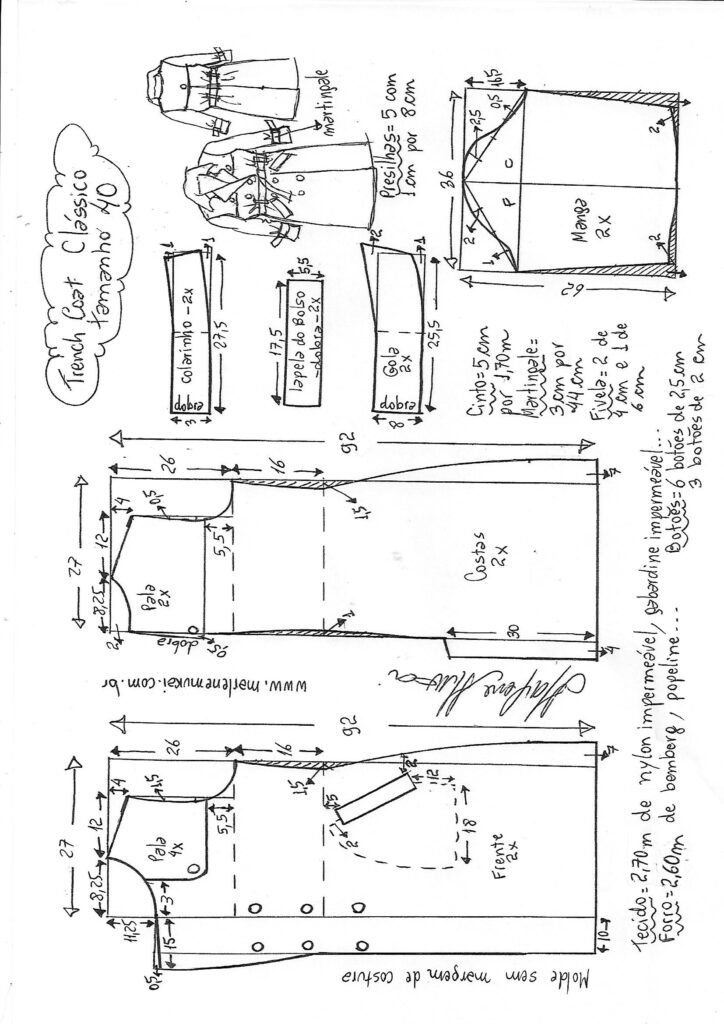 Trench Coat Clássico
tamanho 40
martingale
Presilhas = 5 com
1 cm por 8 cm
Colarinho - 2x
dobra
3
27,5
1
1
lapela do Bolso
- dobra - 2x
17,5
5,5
Gola
2x
dobra
8
25,5
2
1
Cinto = 5 cm
por 1,70m
Martingale =
3 cm por
44 cm
Fivela = 2 de
4 cm e 1 de
6 cm
36
16,5
62
2,5
0,5
2
1
P
C
Manga
2x
2
2
27
8,25
12
4
0,5
26
16
92
5,5
Pala
2x
2
dobra
0,5
1,5
1
Costas
2x
30
4
7
www.marlenemukai.com.br
27
8,25
12
4
1,5
26
16
92
5,5
Pala
4x
11,25
3
15
0,5
1,5
5
2
2
12
18
Frente
2x
10
7
Molde sem margem de costura
Tecido = 2,70m de nylon impermeável, gabardine impermeável...
Forro = 2,60m de bemberg, popeline...
Botões = 6 botões de 2,5 cm
3 botões de 2 cm